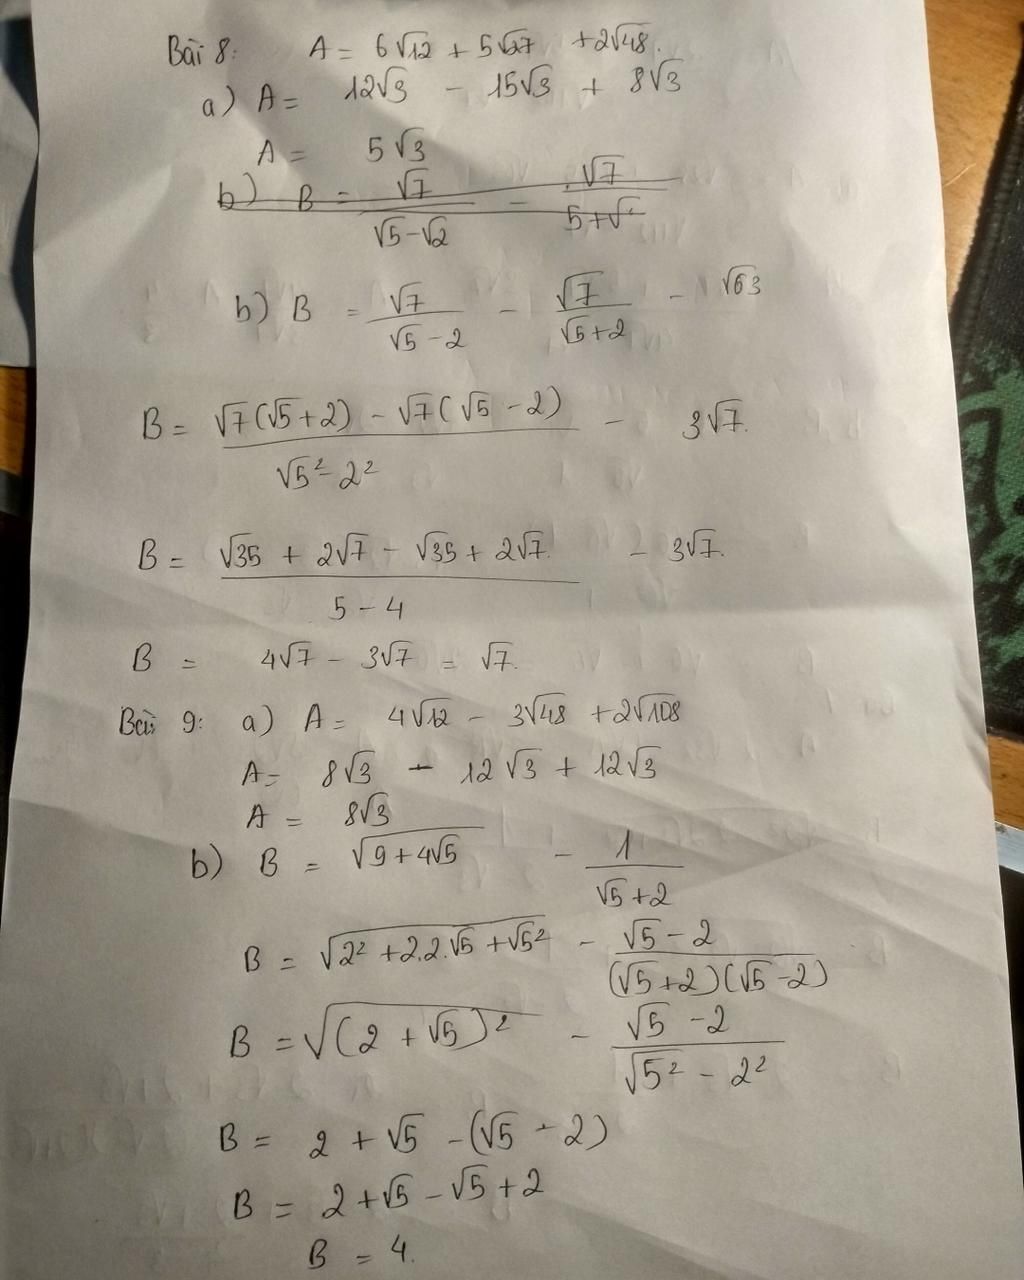 Bài 8: A = 6√12 + 5√27 + 2√48.
a) A = 12√3 - 15√3 + 8√3
A = 5√3
b) B = √7/(√5-√2) - √7/(5+√
b) B = √7/(√5-2) - √7/(√5+2) - √63
B = (√7(√5+2) - √7(√5-2))/(√5²-2²) - 3√7.
B = (√35 + 2√7 - √35 + 2√7.)/(5-4) - 3√7.
B = 4√7 - 3√7 = √7.
Bài 9: a) A = 4√12 - 3√48 + 2√108
A = 8√3 - 12√3 + 12√3
A = 8√3
b) B = √(9+4√5) - 1/(√5+2)
B = √(2²+2.2.√5+√5²) - (√5-2)/((√5+2)(√5-2))
B = √((2+√5)²) - (√5-2)/(√5²-2²)
B = 2 + √5 - (√5-2)
B = 2 + √5 - √5 + 2
B = 4.